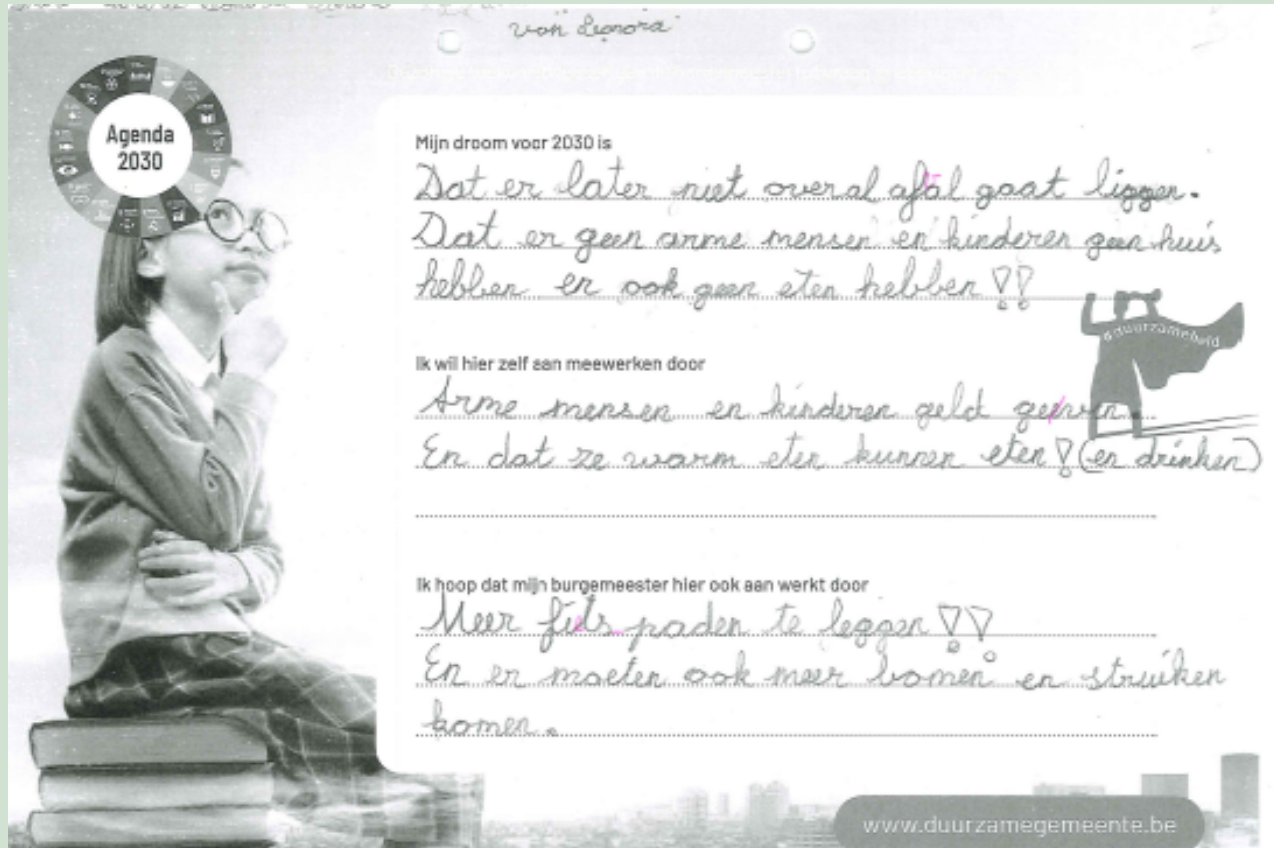 van Leonora
Agenda
2030
Mijn droom voor 2030 is
Dat er later niet overal afal gaat liggen.
Dat er geen arme mensen en kinderen geen huis
hebben en ook geen eten hebben!!
#duurzameheld
Ik wil hier zelf aan meewerken door
Arme mensen en kinderen geld geven.
En dat ze warm eten kunnen eten! (en drinken)
Ik hoop dat mijn burgemeester hier ook aan werkt door
Meer fiets paden te leggen!!
En er moeten ook meer bomen en struiken
komen.
www.duurzamegemeente.be